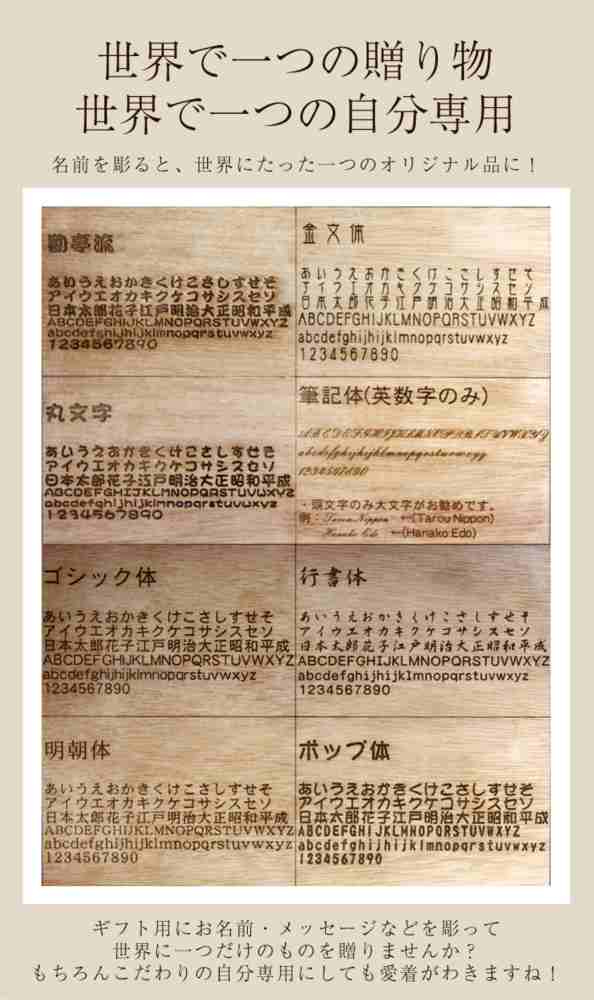 世界で一つの贈り物
世界で一つの自分専用
名前を彫ると、世界にたった一つのオリジナル品に！
勘亭流
あいうえおかきくけこさしすせそ
アイウエオカキクケコサシスセソ
日本太郎花子江戸明治大正昭和平成
ABCDEFGHIJKLMNOPQRSTUVWXYZ
abcdefghijhijklmnopqrstuvwxyz
1234567890
金文体
あいうえおかきくけこさしすせそ
アイウエオカキクケコサシスセソ
日本太郎花子江戸明治大正昭和平成
ABCDEFGHIJKLMNOPQRSTUVWXYZ
abcdefghijhijklmnopqrstuvwxyz
1234567890
丸文字
あいうえおかきくけこさしすせそ
アイウエオカキクケコサシスセソ
日本太郎花子江戸明治大正昭和平成
ABCDEFGHIJKLMNOPQRSTUVWXYZ
abcdefghijhijklmnopqrstuvwxyz
1234567890
筆記体(英数字のみ)
1234567890
・頭文字のみ大文字がお勧めです。
例：Tarou Nippon ←(Tarou Nippon)
Hanako Edo ←(Hanako Edo)
ゴシック体
あいうえおかきくけこさしすせそ
アイウエオカキクケコサシスセソ
日本太郎花子江戸明治大正昭和平成
ABCDEFGHIJKLMNOPQRSTUVWXYZ
abcdefghijhijklmnopqrstuvwxyz
1234567890
行書体
あいうえおかきくけこさしすせそ
アイウエオカキクケコサシスセソ
日本太郎花子江戸明治大正昭和平成
ABCDEFGHIJKLMNOPQRSTUVWXYZ
abcdefghijhijklmnopqrstuvwxyz
1234567890
明朝体
あいうえおかきくけこさしすせそ
アイウエオカキクケコサシスセソ
日本太郎花子江戸明治大正昭和平成
ABCDEFGHIJKLMNOPQRSTUVWXYZ
abcdefghijhijklmnopqrstuvwxyz
1234567890
ポップ体
あいうえおかきくけこさしすせそ
アイウエオカキクケコサシスセソ
日本太郎花子江戸明治大正昭和平成
ABCDEFGHIJKLMNOPQRSTUVWXYZ
abcdefghijhijklmnopqrstuvwxyz
1234567890
ギフト用にお名前・メッセージなどを彫って
世界に一つだけのものを贈りませんか？
もちろんこだわりの自分専用にしても愛着がわきますね！